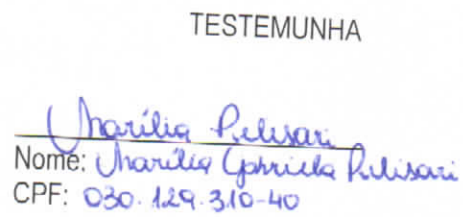 TESTEMUNHA
Marília Pelisari
Nome: Marília Gabriela Pelisari
CPF: 030.129.310-40